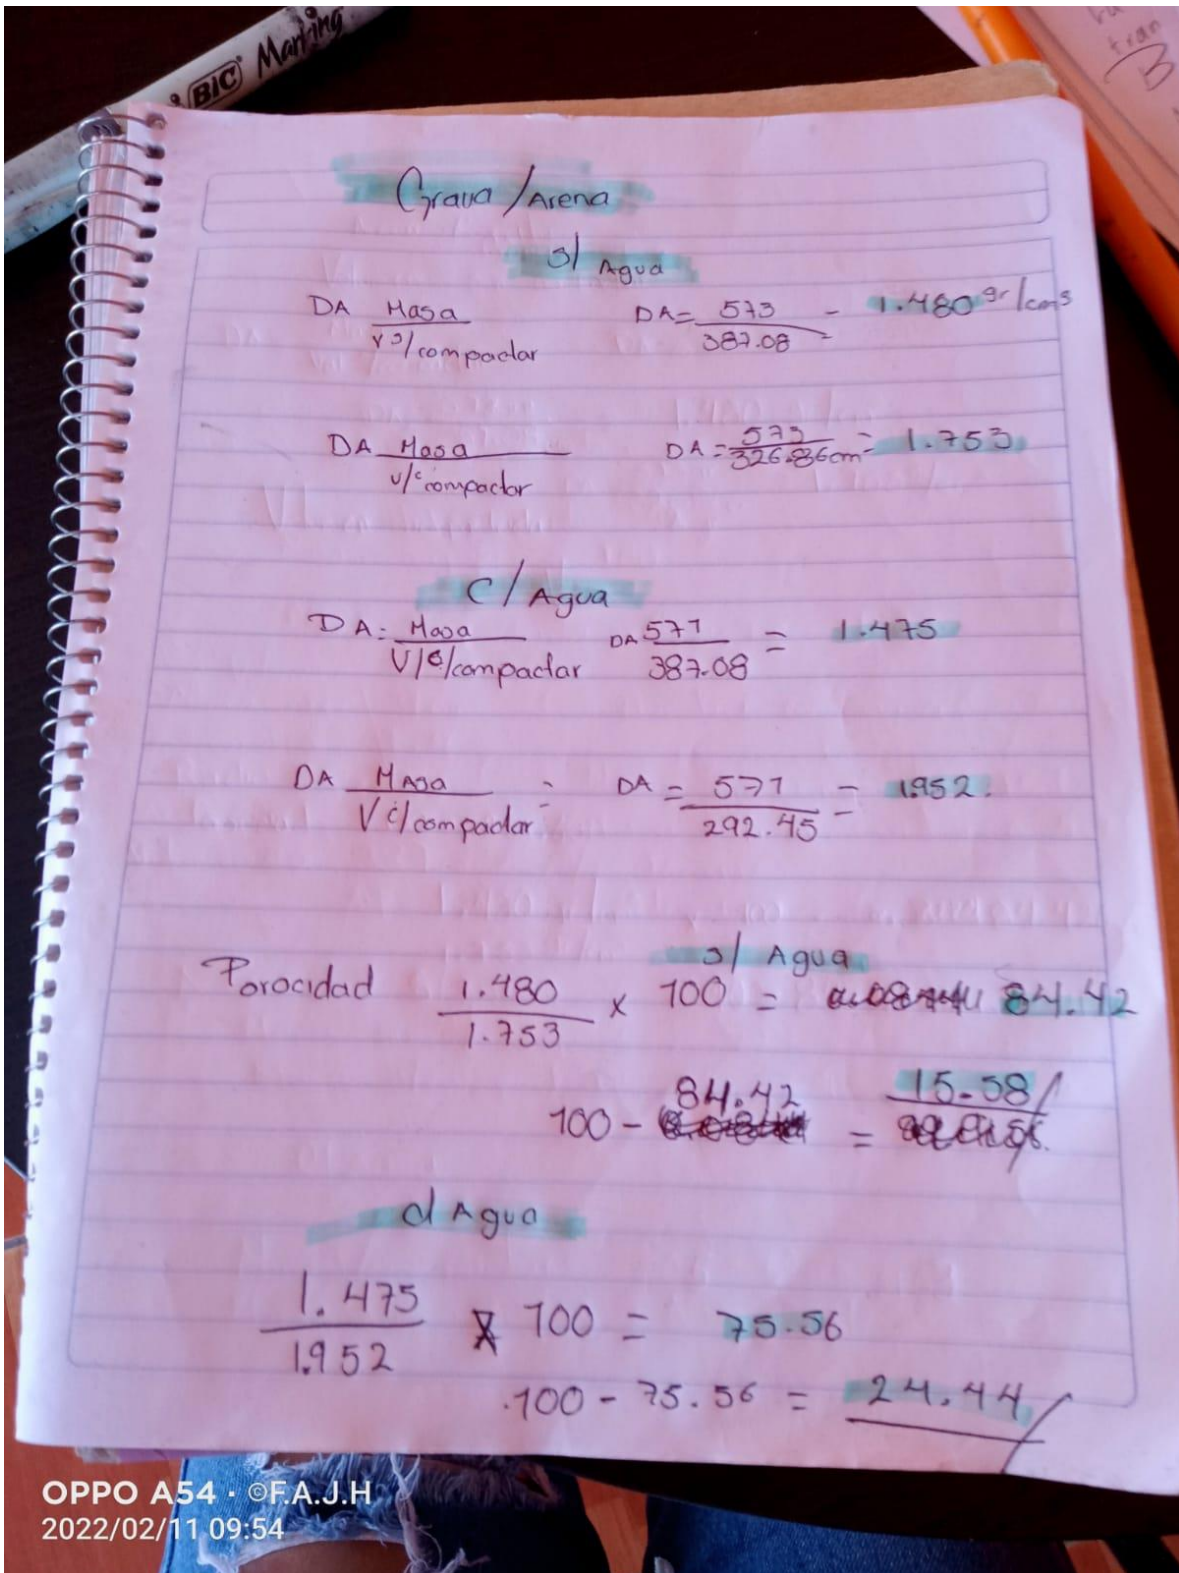 BIC Marking
tran
B
Grava / Arena
s/ Agua
DA Masa / V s/compactar DA = 573 / 387.08 = 1.480 gr/cm3
DA Masa / v/c compactar DA = 573 / 326.86cm = 1.753
C/ Agua
DA: Masa / V/s/compactar DA 571 / 387.08 = 1.475
DA Masa / V c/compactar = DA = 571 / 292.45 = 1.952.
s/ Agua
Porocidad 1.480 / 1.753 x 100 = 84.42
100 - 84.42 = 15.58
c/ Agua
1.475 / 1.952 x 100 = 75.56
.100 - 75.56 = 24.44
OPPO A54 · ©F.A.J.H
2022/02/11 09:54